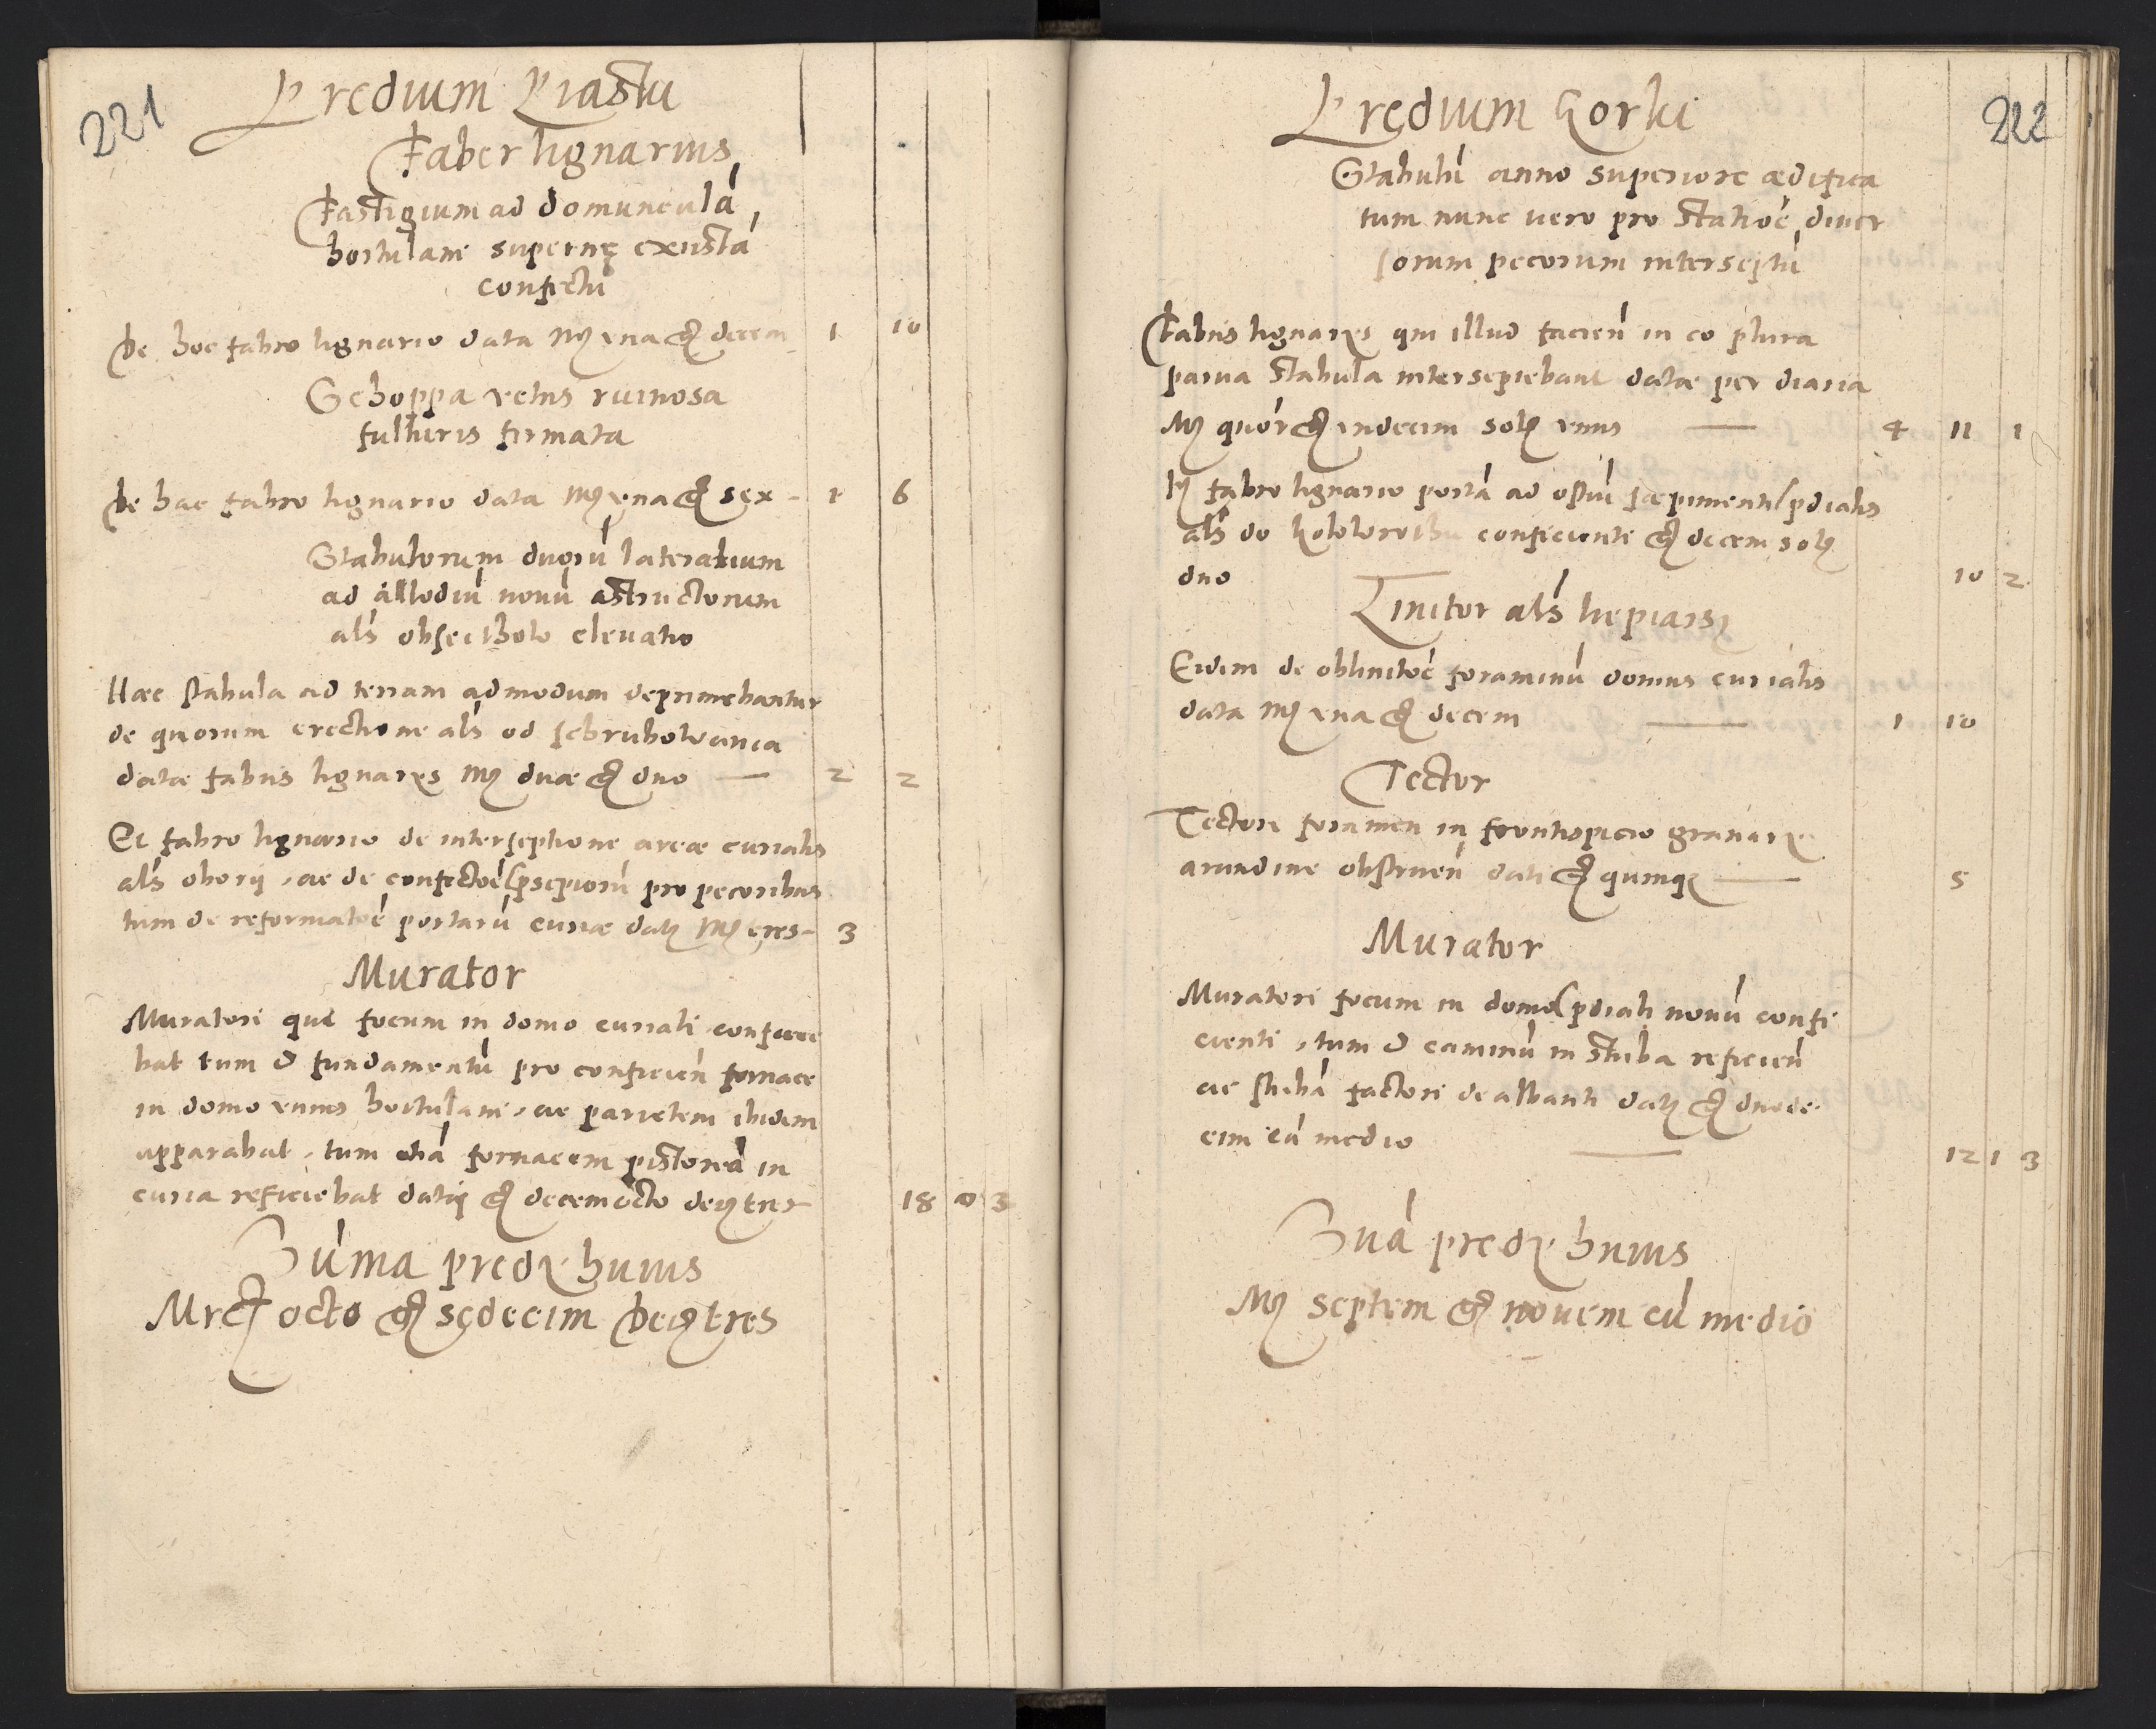 221
Predium Piastu
Faber lignarius
Fastigium ad domunculá
hortulani supernę existá
confectú
De hoc fabro lignario data Mͬ vna gͬ decem 1 10
Schoppa vetus ruinosa
fulturis firmata
De hac fabro lignario data Mͬ vna gͬ sex 1 6
Stabulorum duorú lateralium
ad allodiú nouú astructorum
als elevatio
Haec stabula ad terram admodum deprimebantur
de quorum erectione als od
datae fabris lignarÿs Mͬ duae gͬ duo — 2 2
Et fabro lignario de interseptione areae curialis
als oborÿ, ac de confectoé psepiorú pro pecoribus
tum de reformatoé portarú curiae datę Mͬ tres 3
Murator
Muratori qui focum in domo curiali conficie
bat tum & fundamentú pro conficień fornace
in domo vnius hortulani, ac parietem ibidem
apparabat, tum etiá fornacem pistoriá in
curia reficiebat datÿ gͬ decemocto deͬ tres 18 0 3
Súma predÿ huius
Mrcͬ octo gͬ sędecim deͬ tres
222
Prędium Gorki
Stabulú anno superiore aedifica
tum nunc uero pro statioé diuer
sorum pecorum interseptú
Fabris lignarÿs qui illud facień in eo plura
parua stabula intersepiebant datae per diaria
Mͬ quór gͬ vndecim solͬ vnus — 4 11 1
Iͭ fabro lignario portá ad ostiú saepimenti pdialis
als do conficienti gͬ decem solͬ
duo 10 2
Linitor als lepiarz
Eidem de oblinitoé foraminú domus curialis
data Mͬ vna gͬ decem — 1 10
Tector
Tectori foramen in frontispicio granarÿ
arundine obstrueń dati gͬ quinqȝ — 5
Murator
Muratori focum in domo pdiali nouú confi
cienti, tum & caminú in stuba reficień
ac stubá factori dealbanti datę gͬ duode
cim cú medio — 12 1 3
Súá predÿ huius
Mͬ septem gͬ nouem cú medio